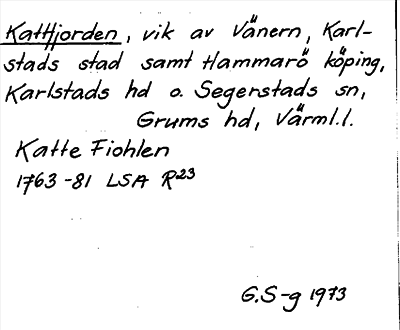 Kattfjorden, vik av Vänern, Karl-
stads stad samt Hammarö köping,
Karlstads hd o. Segerstads sn,
Grums hd, Värml.l.
Katte Fiohlen
1763-81 LSA R23
G.S-g 1973